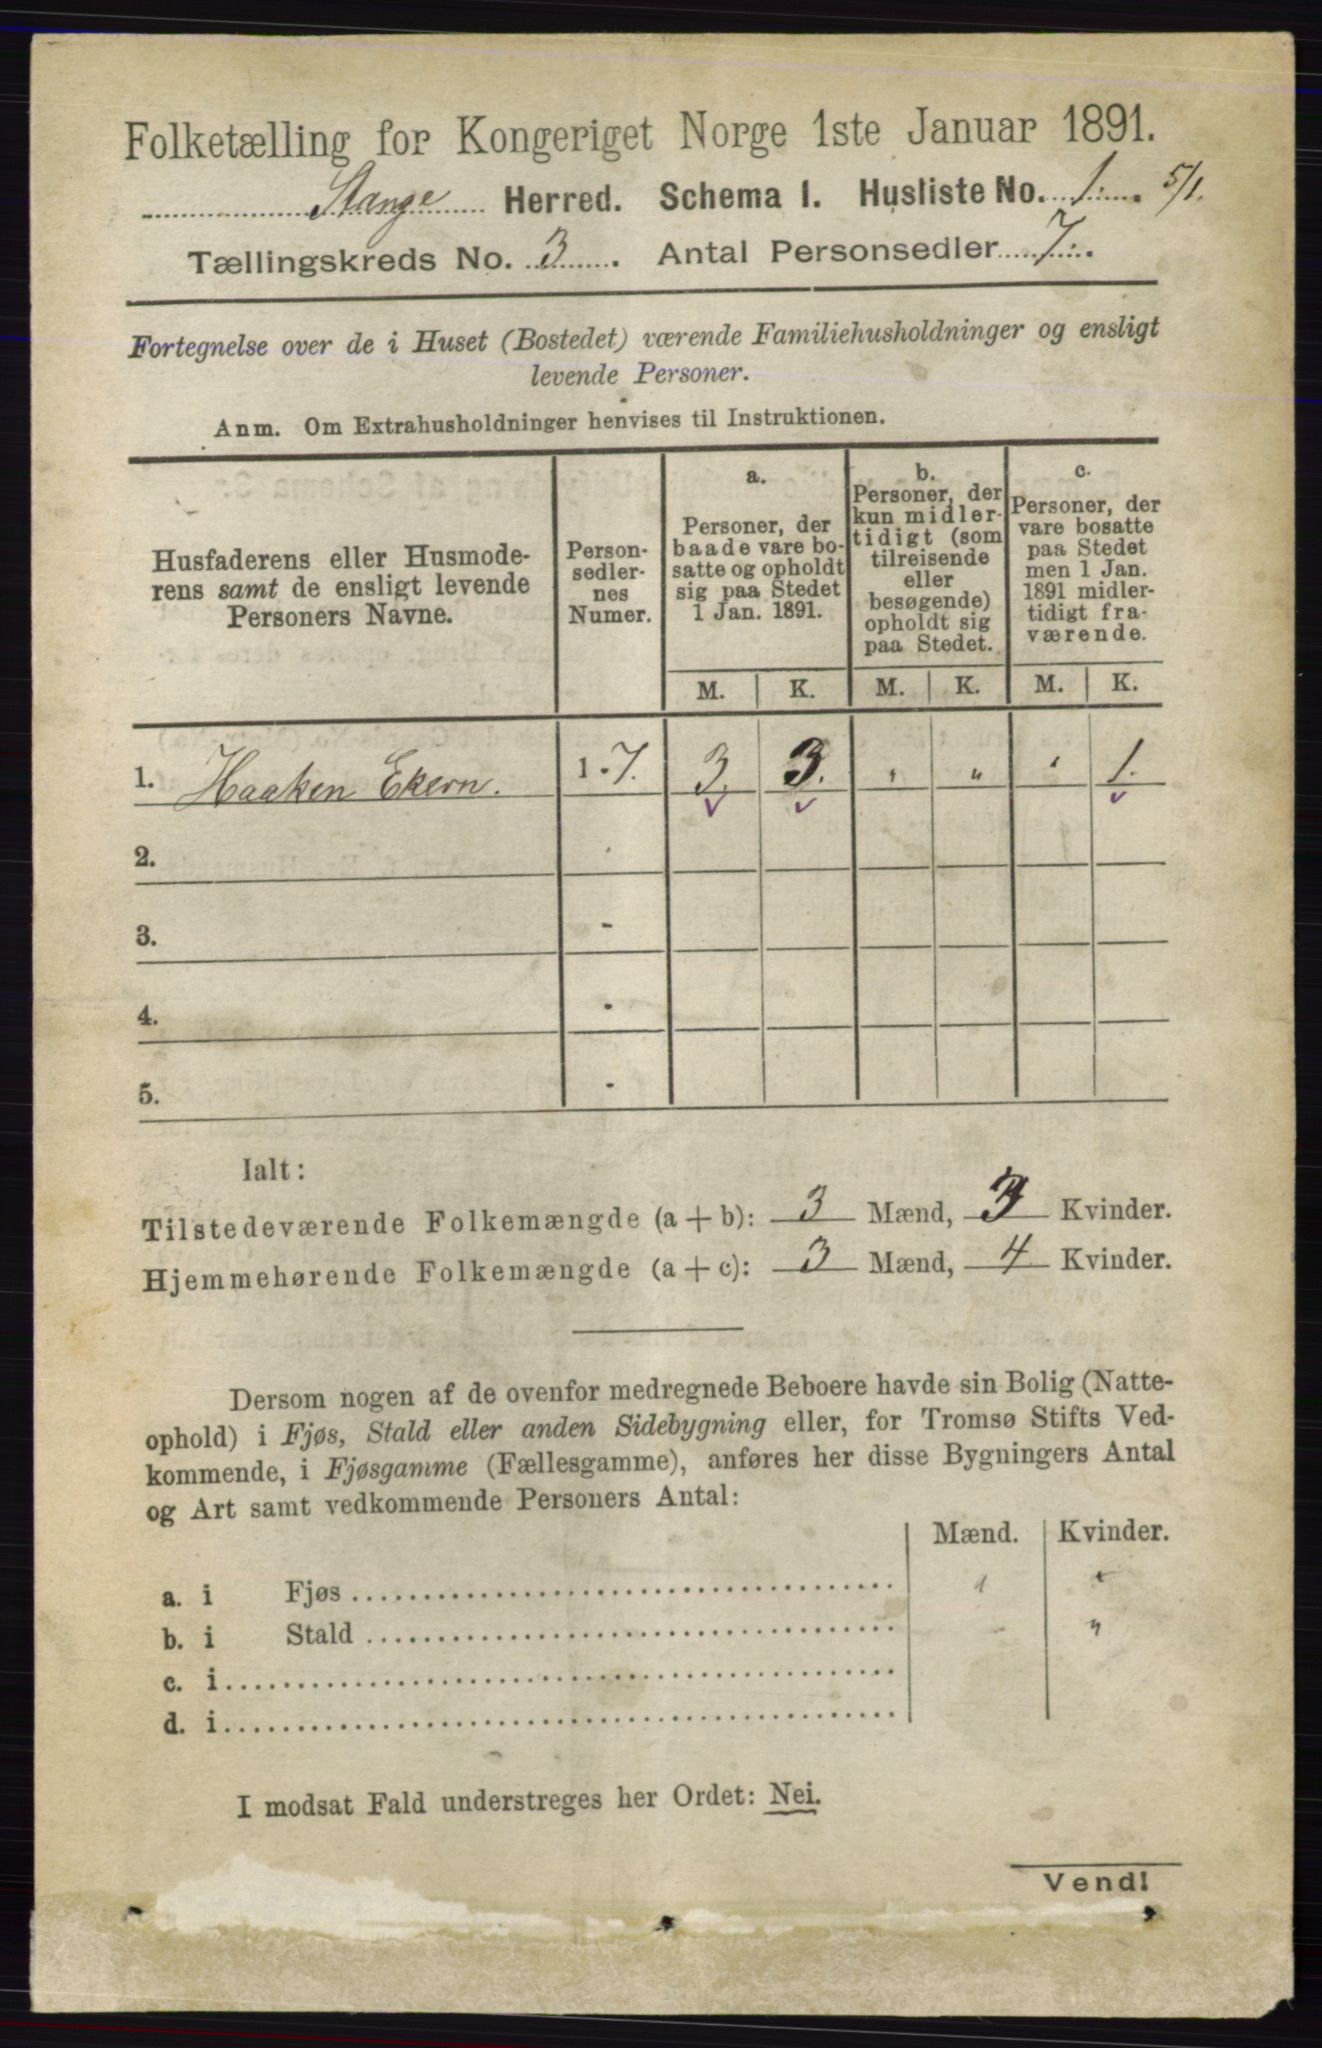 Folketælling for Kongeriget Norge 1ste Januar 1891.
Stange Herred. Schema I. Husliste No. 1. 5/1.
Tællingskreds No. 3. Antal Personsedler 7.
Fortegnelse over de i Huset (Bostedet) værende Familiehusholdninger og ensligt
levende Personer.
Anm. Om Extrahusholdninger henvises til Instruktionen.
Husfaderens eller Husmode-
rens samt de ensligt levende
Personers Navne.
Person-
sedler-
nes
Numer.
a.
Personer, der
baade vare bo-
satte og opholdt
sig paa Stedet
1 Jan. 1891.
b.
Personer, der
kun midler-
tidigt (som
tilreisende
eller
besøgende)
opholdt sig
paa Stedet.
c.
Personer, der
vare bosatte
paa Stedet
men 1 Jan.
1891 midler-
tidigt fra-
værende.
M. K. M. K. M. K.
1. Haaken Ekern. 1-7. 3. 3. " " " 1.
2.
3. -
4. -
5. -
Ialt:
Tilstedeværende Folkemængde (a + b): 3 Mænd, 3 Kvinder.
Hjemmehørende Folkemængde (a + c): 3 Mænd, 4 Kvinder.
Dersom nogen af de ovenfor medregnede Beboere havde sin Bolig (Natte-
ophold) i Fjøs, Stald eller anden Sidebygning eller, for Tromsø Stifts Ved-
kommende, i Fjøsgamme (Fællesgamme), anføres her disse Bygningers Antal
og Art samt vedkommende Personers Antal:
Mænd. Kvinder.
a. i Fjøs
b. i Stald "
c. i
d. i
I modsat Fald understreges her Ordet: Nei.
Vend!